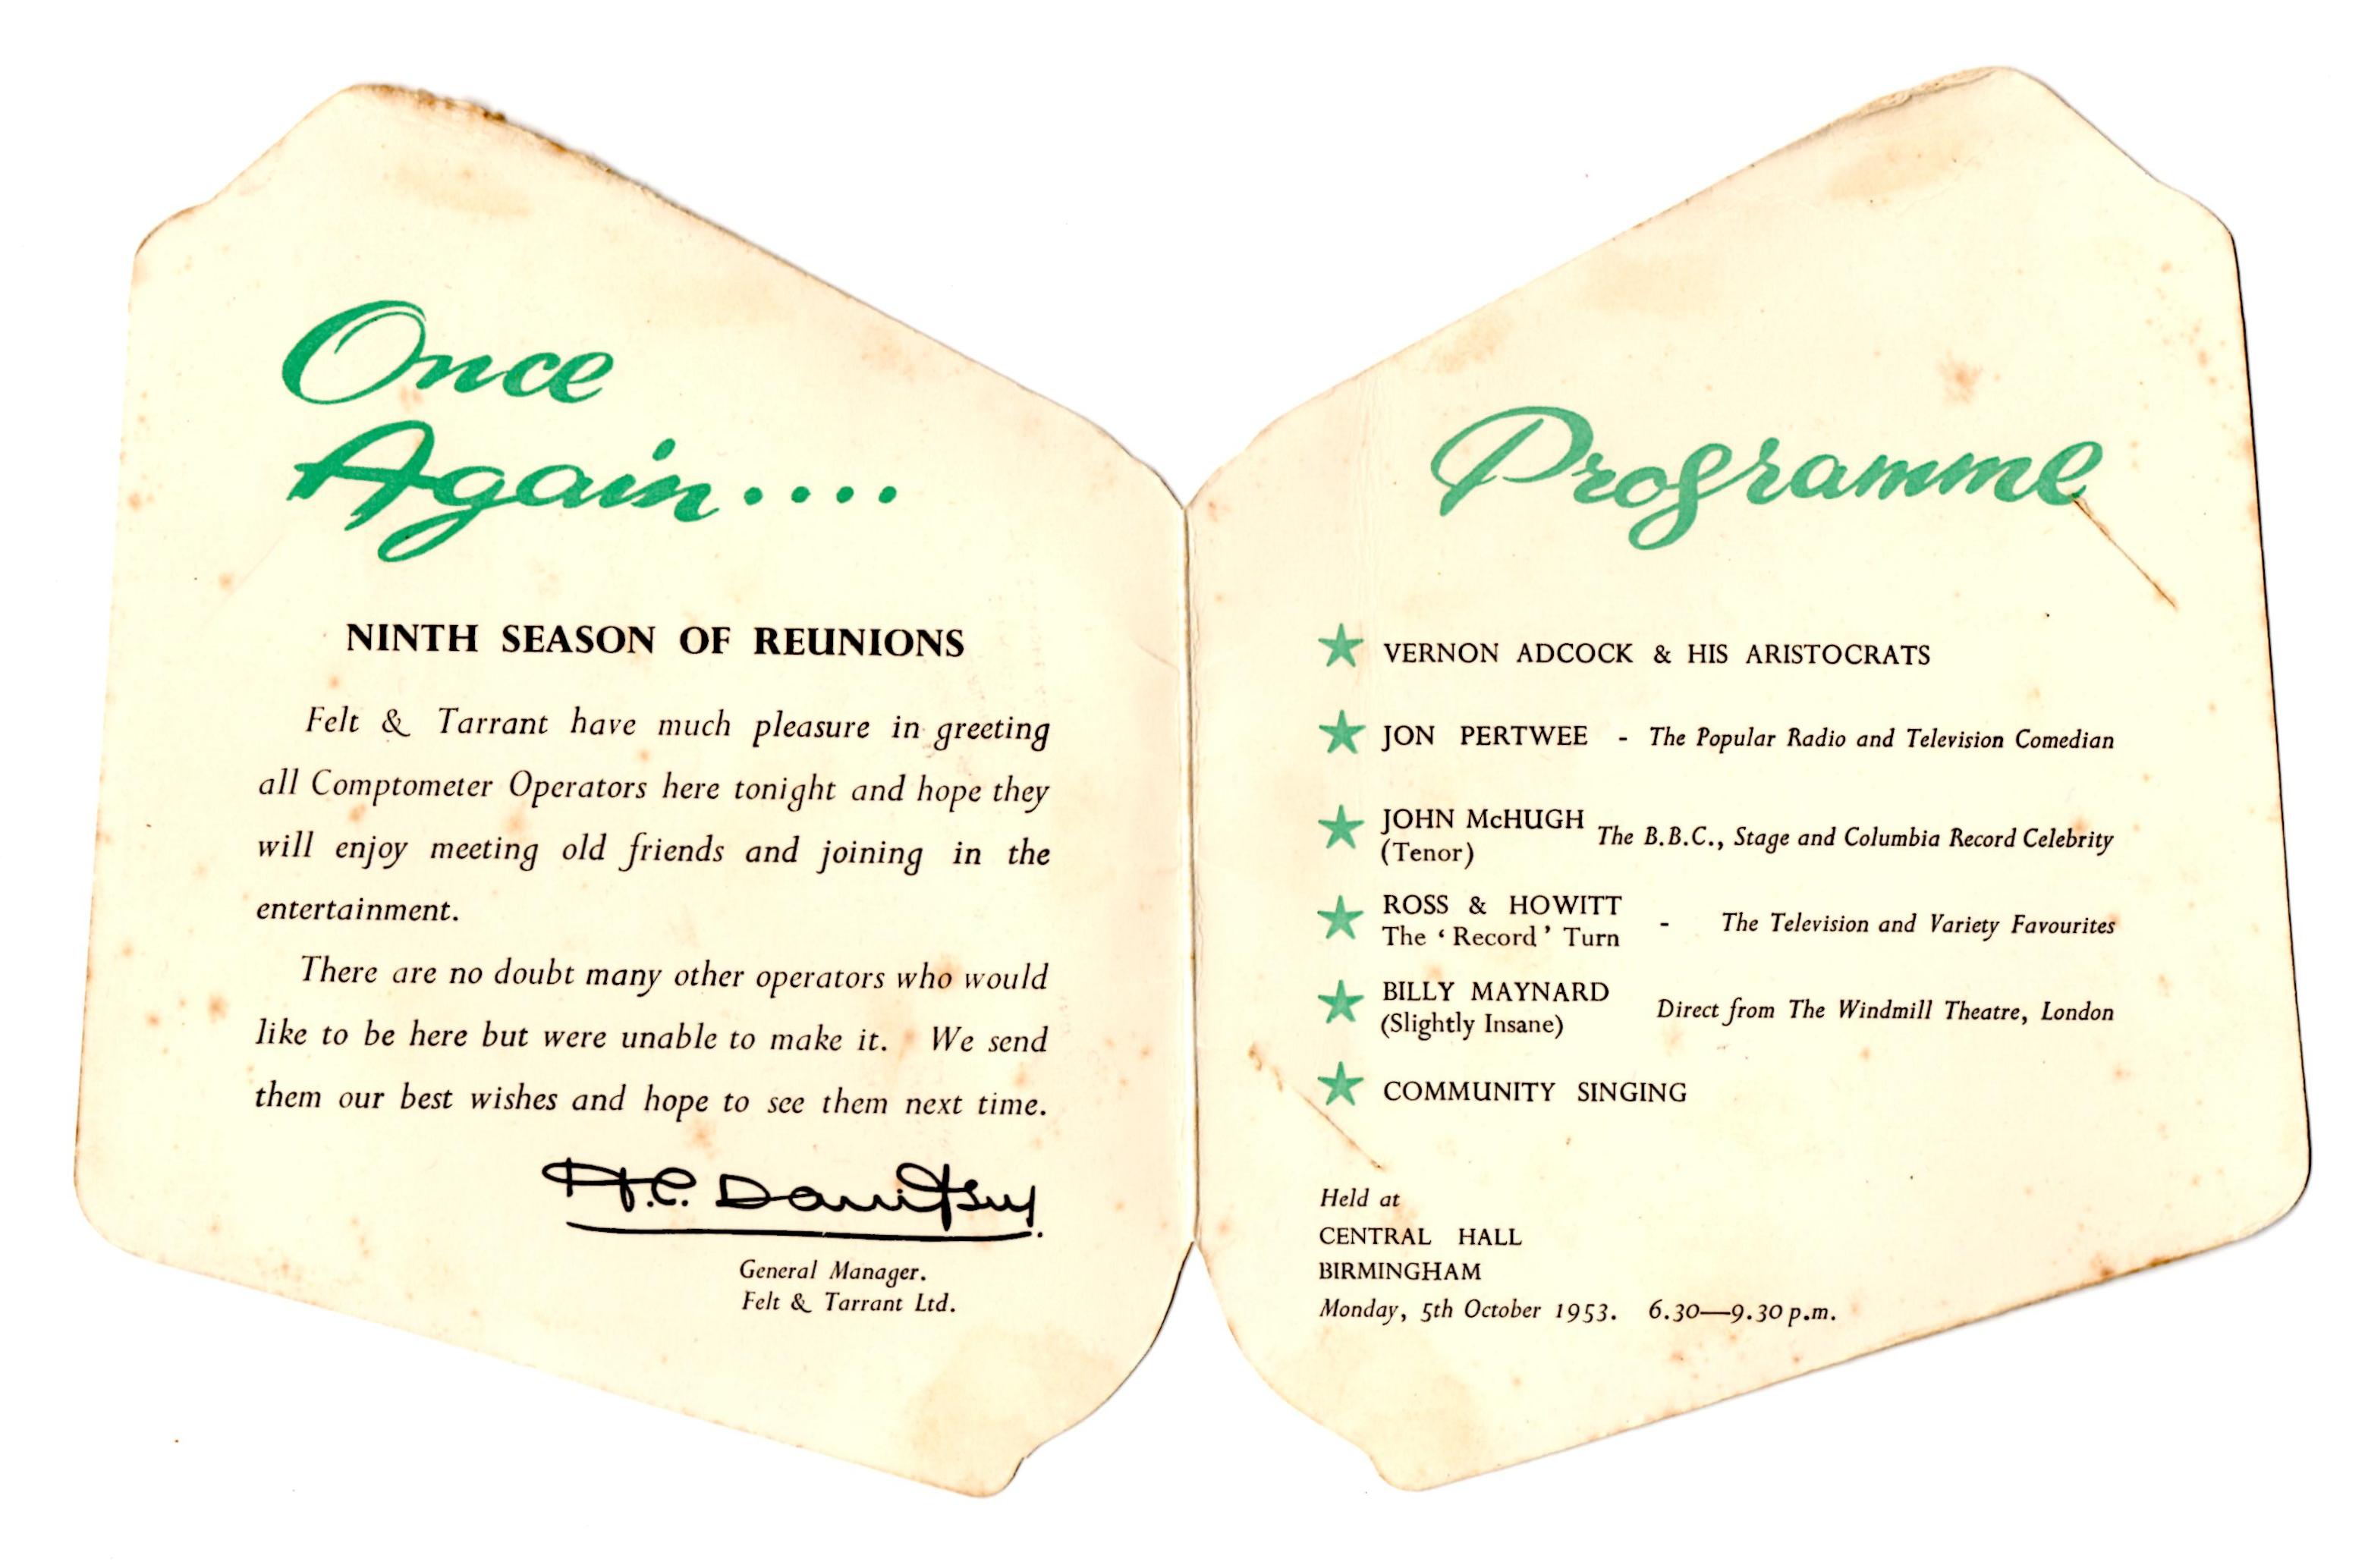 Once
Again....
NINTH SEASON OF REUNIONS
Felt & Tarrant have much pleasure in greeting
all Comptometer Operators here tonight and hope they
will enjoy meeting old friends and joining in the
entertainment.
There are no doubt many other operators who would
like to be here but were unable to make it. We send
them our best wishes and hope to see them next time.
General Manager.
Felt & Tarrant Ltd.
Programme
VERNON ADCOCK & HIS ARISTOCRATS
JON PERTWEE - The Popular Radio and Television Comedian
JOHN McHUGH The B.B.C., Stage and Columbia Record Celebrity
(Tenor)
ROSS & HOWITT - The Television and Variety Favourites
The ‘Record’ Turn
BILLY MAYNARD Direct from The Windmill Theatre, London
(Slightly Insane)
COMMUNITY SINGING
Held at
CENTRAL HALL
BIRMINGHAM
Monday, 5th October 1953. 6.30—9.30 p.m.